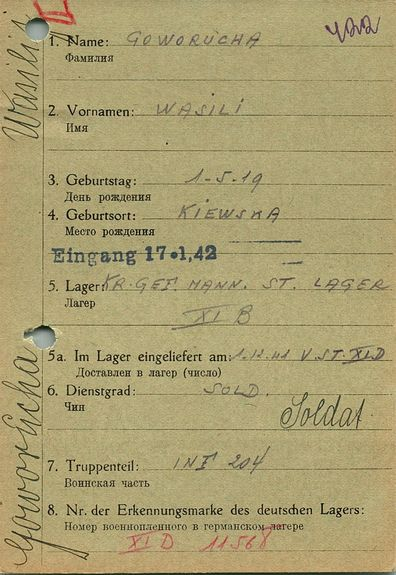 Wasilij
422
1. Name: GOWORUCHA
Фамилия
2. Vornamen: WASILI
Имя
3. Geburtstag: 1-5-19
День рождения
4. Geburtsort: KIEWSKA
Место рождения
Eingang 17.1.42
5. Lager: KR-GEF. MANN. ST. LAGER
Лагер
XI B
5a. Im Lager eingeliefert am: V. ST. XI D
Доставлен в лагер (число)
6. Dienstgrad: SOLD.
Чин
Soldat
7. Truppenteil: INF 204
Воинская часть
8. Nr. der Erkennungsmarke des deutschen Lagers:
Номер военнопленного в германском лагере
XI D 11568
Goworucha